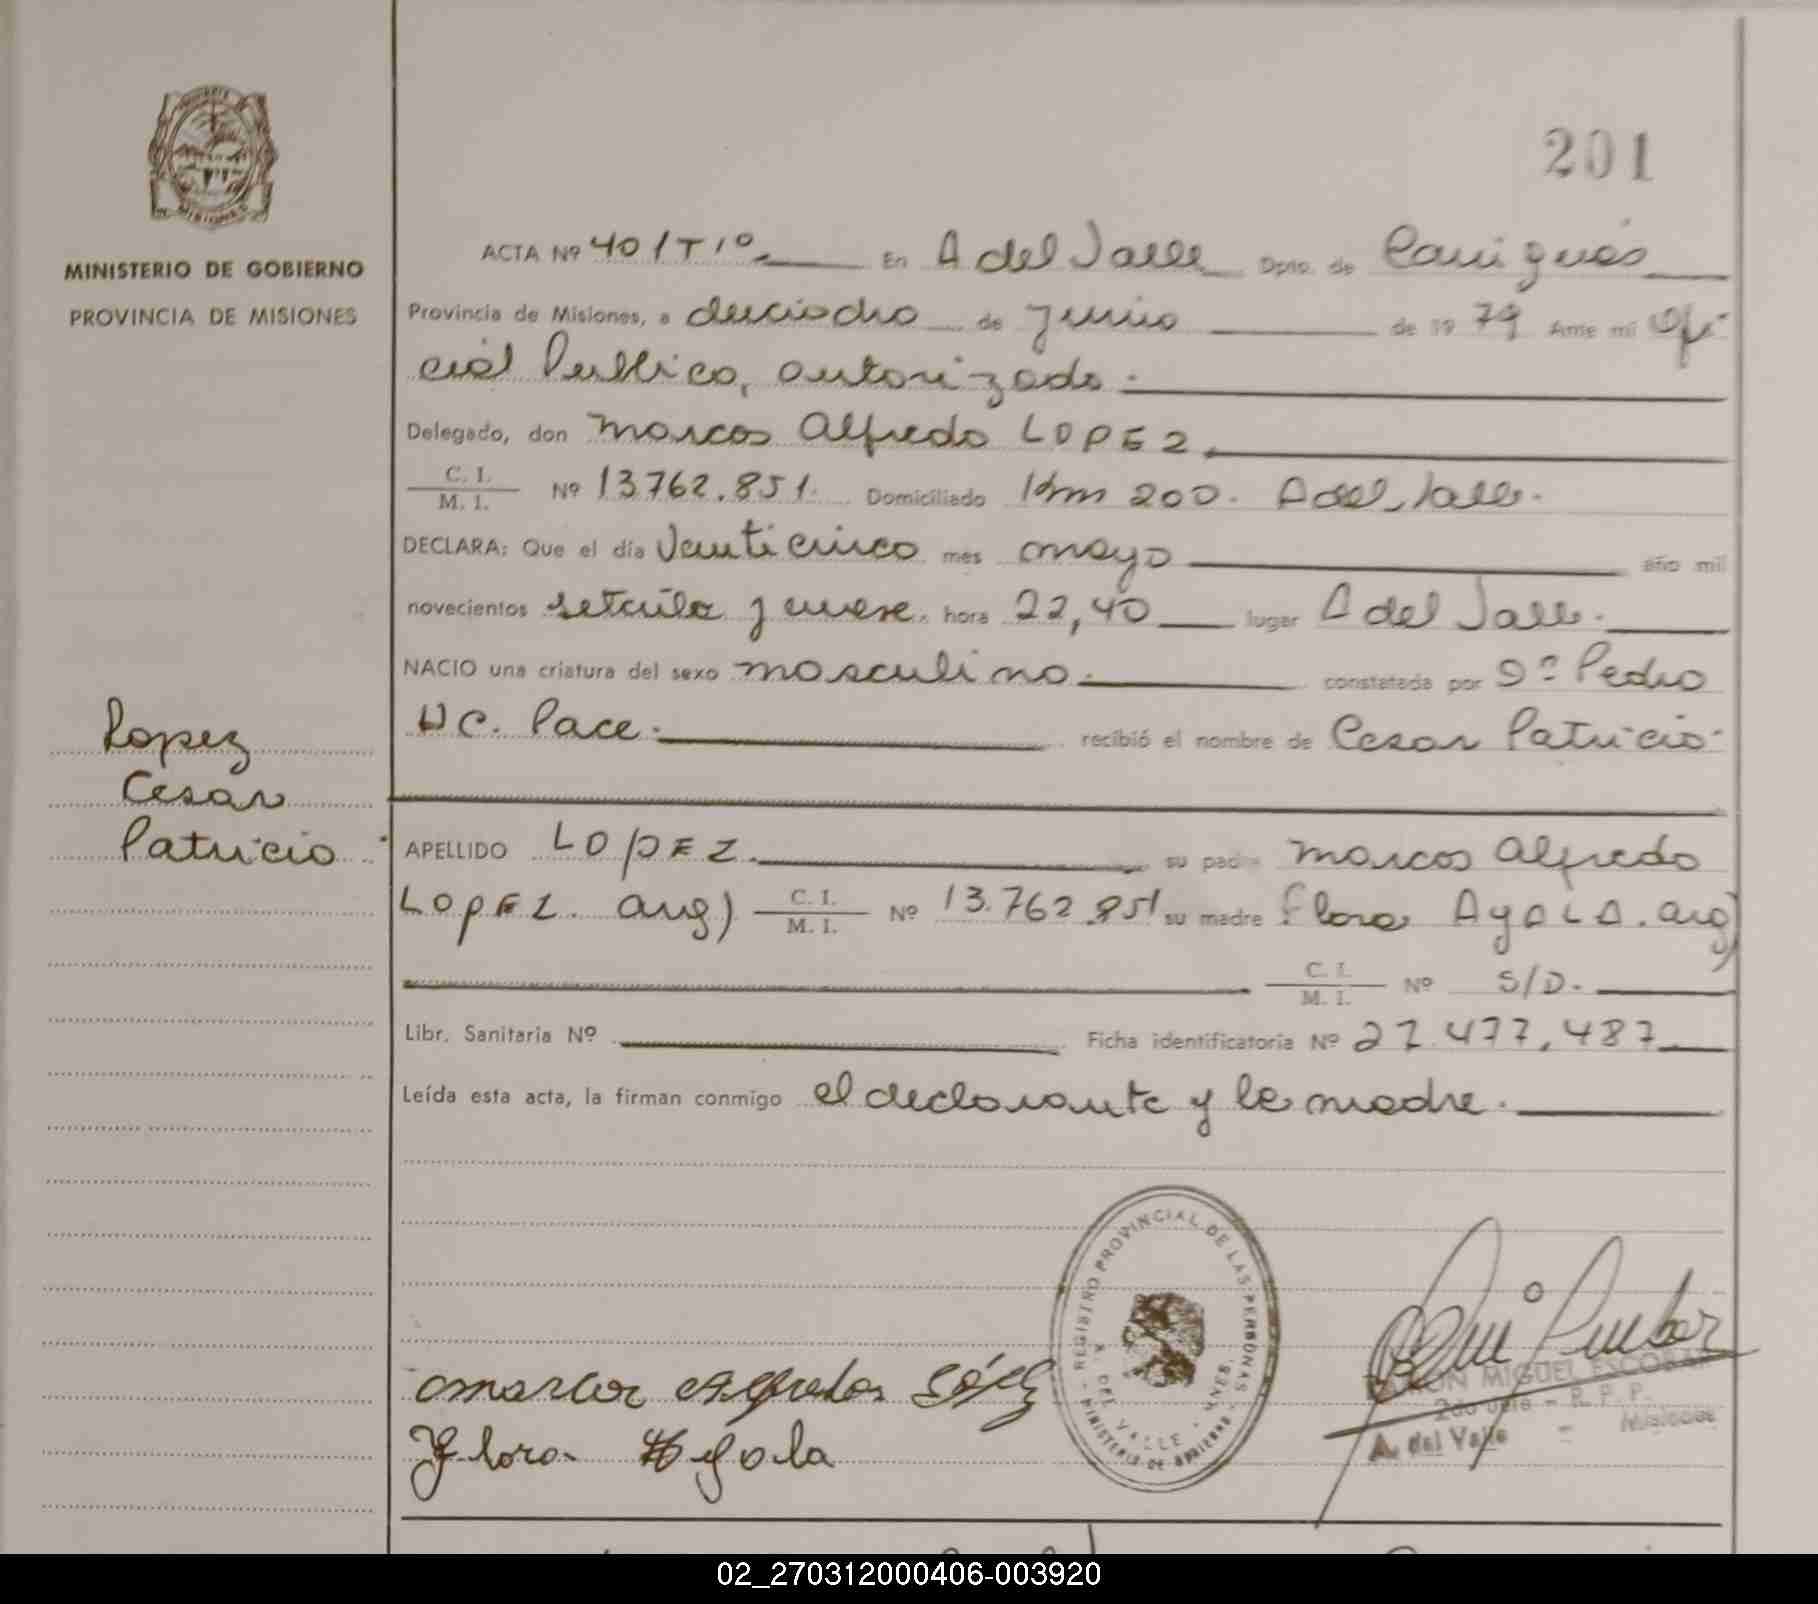 201
MINISTERIO DE GOBIERNO
PROVINCIA DE MISIONES
ACTA Nº 401 Tº 1º En A del Valle Dpto. de Cainguás
Provincia de Misiones, a dieciocho de junio de 19 79 Ante mi Ofi
cial Publico, autorizado.
Delegado, don Marcos Alfredo LOPEZ.
C. I.
M. I. Nº 13.762.851. Domiciliado Km 200. A del Valle.
DECLARA: Que el día Veinticinco mes mayo año mil
novecientos setenta y nueve. hora 22,40 lugar A del Valle.
NACIO una criatura del sexo masculino. constatada por Dº Pedro
H C. Pace. recibió el nombre de Cesar Patricio.
Lopez
Cesar
Patricio
APELLIDO LOPEZ. su padre Marcos Alfredo
LOPEZ. arg) C. I.
M. I. Nº 13.762.851 su madre Flora AYALA. arg)
C. I.
M. I. Nº S/D.
Libr. Sanitaria Nº Ficha identificatoria Nº 27.477,487
Leída esta acta, la firman conmigo el declarante y la madre.
REGISTRO PROVINCIAL DE LAS PERSONAS
A. DEL VALLE - MNES.
MINISTERIO DE GOBIERNO
Marcos Alfredo López
Flora Ayala
RAMON MIGUEL ESCOBAR
R. P. P.
A. del Valle - Misiones
02_270312000406-003920